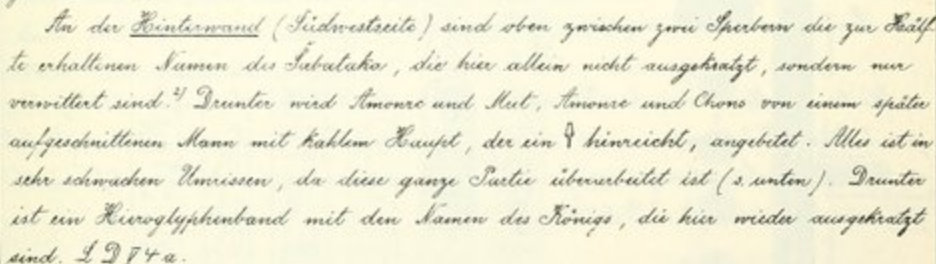 An der Hinterwand (Südwestseite) sind oben zwischen zwei Sperbern die zur Hälf-
te erhaltenen Namen des Šabataka, die hier allein nicht ausgekratzt, sondern nur
verwittert sind.²⁾ Drunter wird Amonre und Mut, Amonre und Chons von einem später
aufgeschnittenen Mann mit kahlem Haupt, der ein hinreicht, angebetet. Alles ist in
sehr schwachen Umrissen, da diese ganze Partie überarbeitet ist (s. unten). Drunter
ist ein Hieroglyphenband mit den Namen des Königs, die hier wieder ausgekratzt
sind. L D V 4 a.